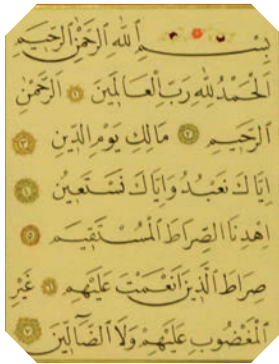 بِسْمِ اللهِ الرَّحْمٰنِ الرَّحِيمِ
اَلْحَمْدُ لِلّٰهِ رَبِّ الْعَالَمِينَ ١ اَلرَّحْمٰنِ
الرَّحِيمِ ٢ مَالِكِ يَوْمِ الدِّينِ ٣
اِيَّاكَ نَعْبُدُ وَاِيَّاكَ نَسْتَعِينُ ٤
اِهْدِنَا الصِّرَاطَ الْمُسْتَقِيمَ ٥
صِرَاطَ الَّذِينَ اَنْعَمْتَ عَلَيْهِمْ ٦ غَيْرِ
الْمَغْضُوبِ عَلَيْهِمْ وَلَا الضَّالِّينَ ٧